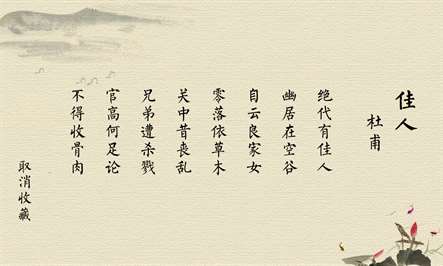 佳人
杜甫
绝代有佳人
幽居在空谷
自云良家女
零落依草木
关中昔丧乱
兄弟遭杀戮
官高何足论
不得收骨肉
取消收藏